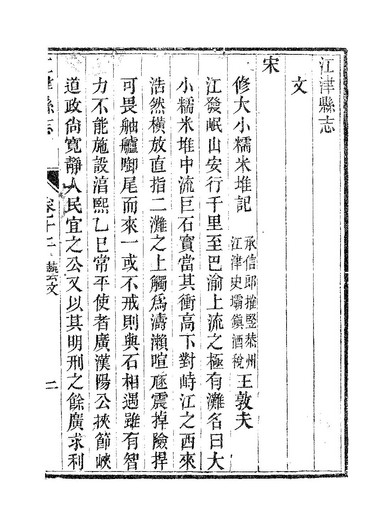 江津縣志
文
宋
修大小糯米堆記
承信郎權暨恭州
江津史壩鎮酒稅
王敦夫
江發岷山安行千里至巴渝上流之極有灘名曰大
小糯米堆中流巨石實當其衝高下對峙江之西來
浩然橫放直指二灘之上觸爲濤瀨喧豗震掉險捍
可畏舳艫啣尾而來一或不戒則與石相遇雖有智
力不能施設淳熙乙巳常平使者廣漢陽公挾節峽
道政尙寬靜人民宜之公又以其明刑之餘廣求利
江津縣志
卷十二
藝文
二